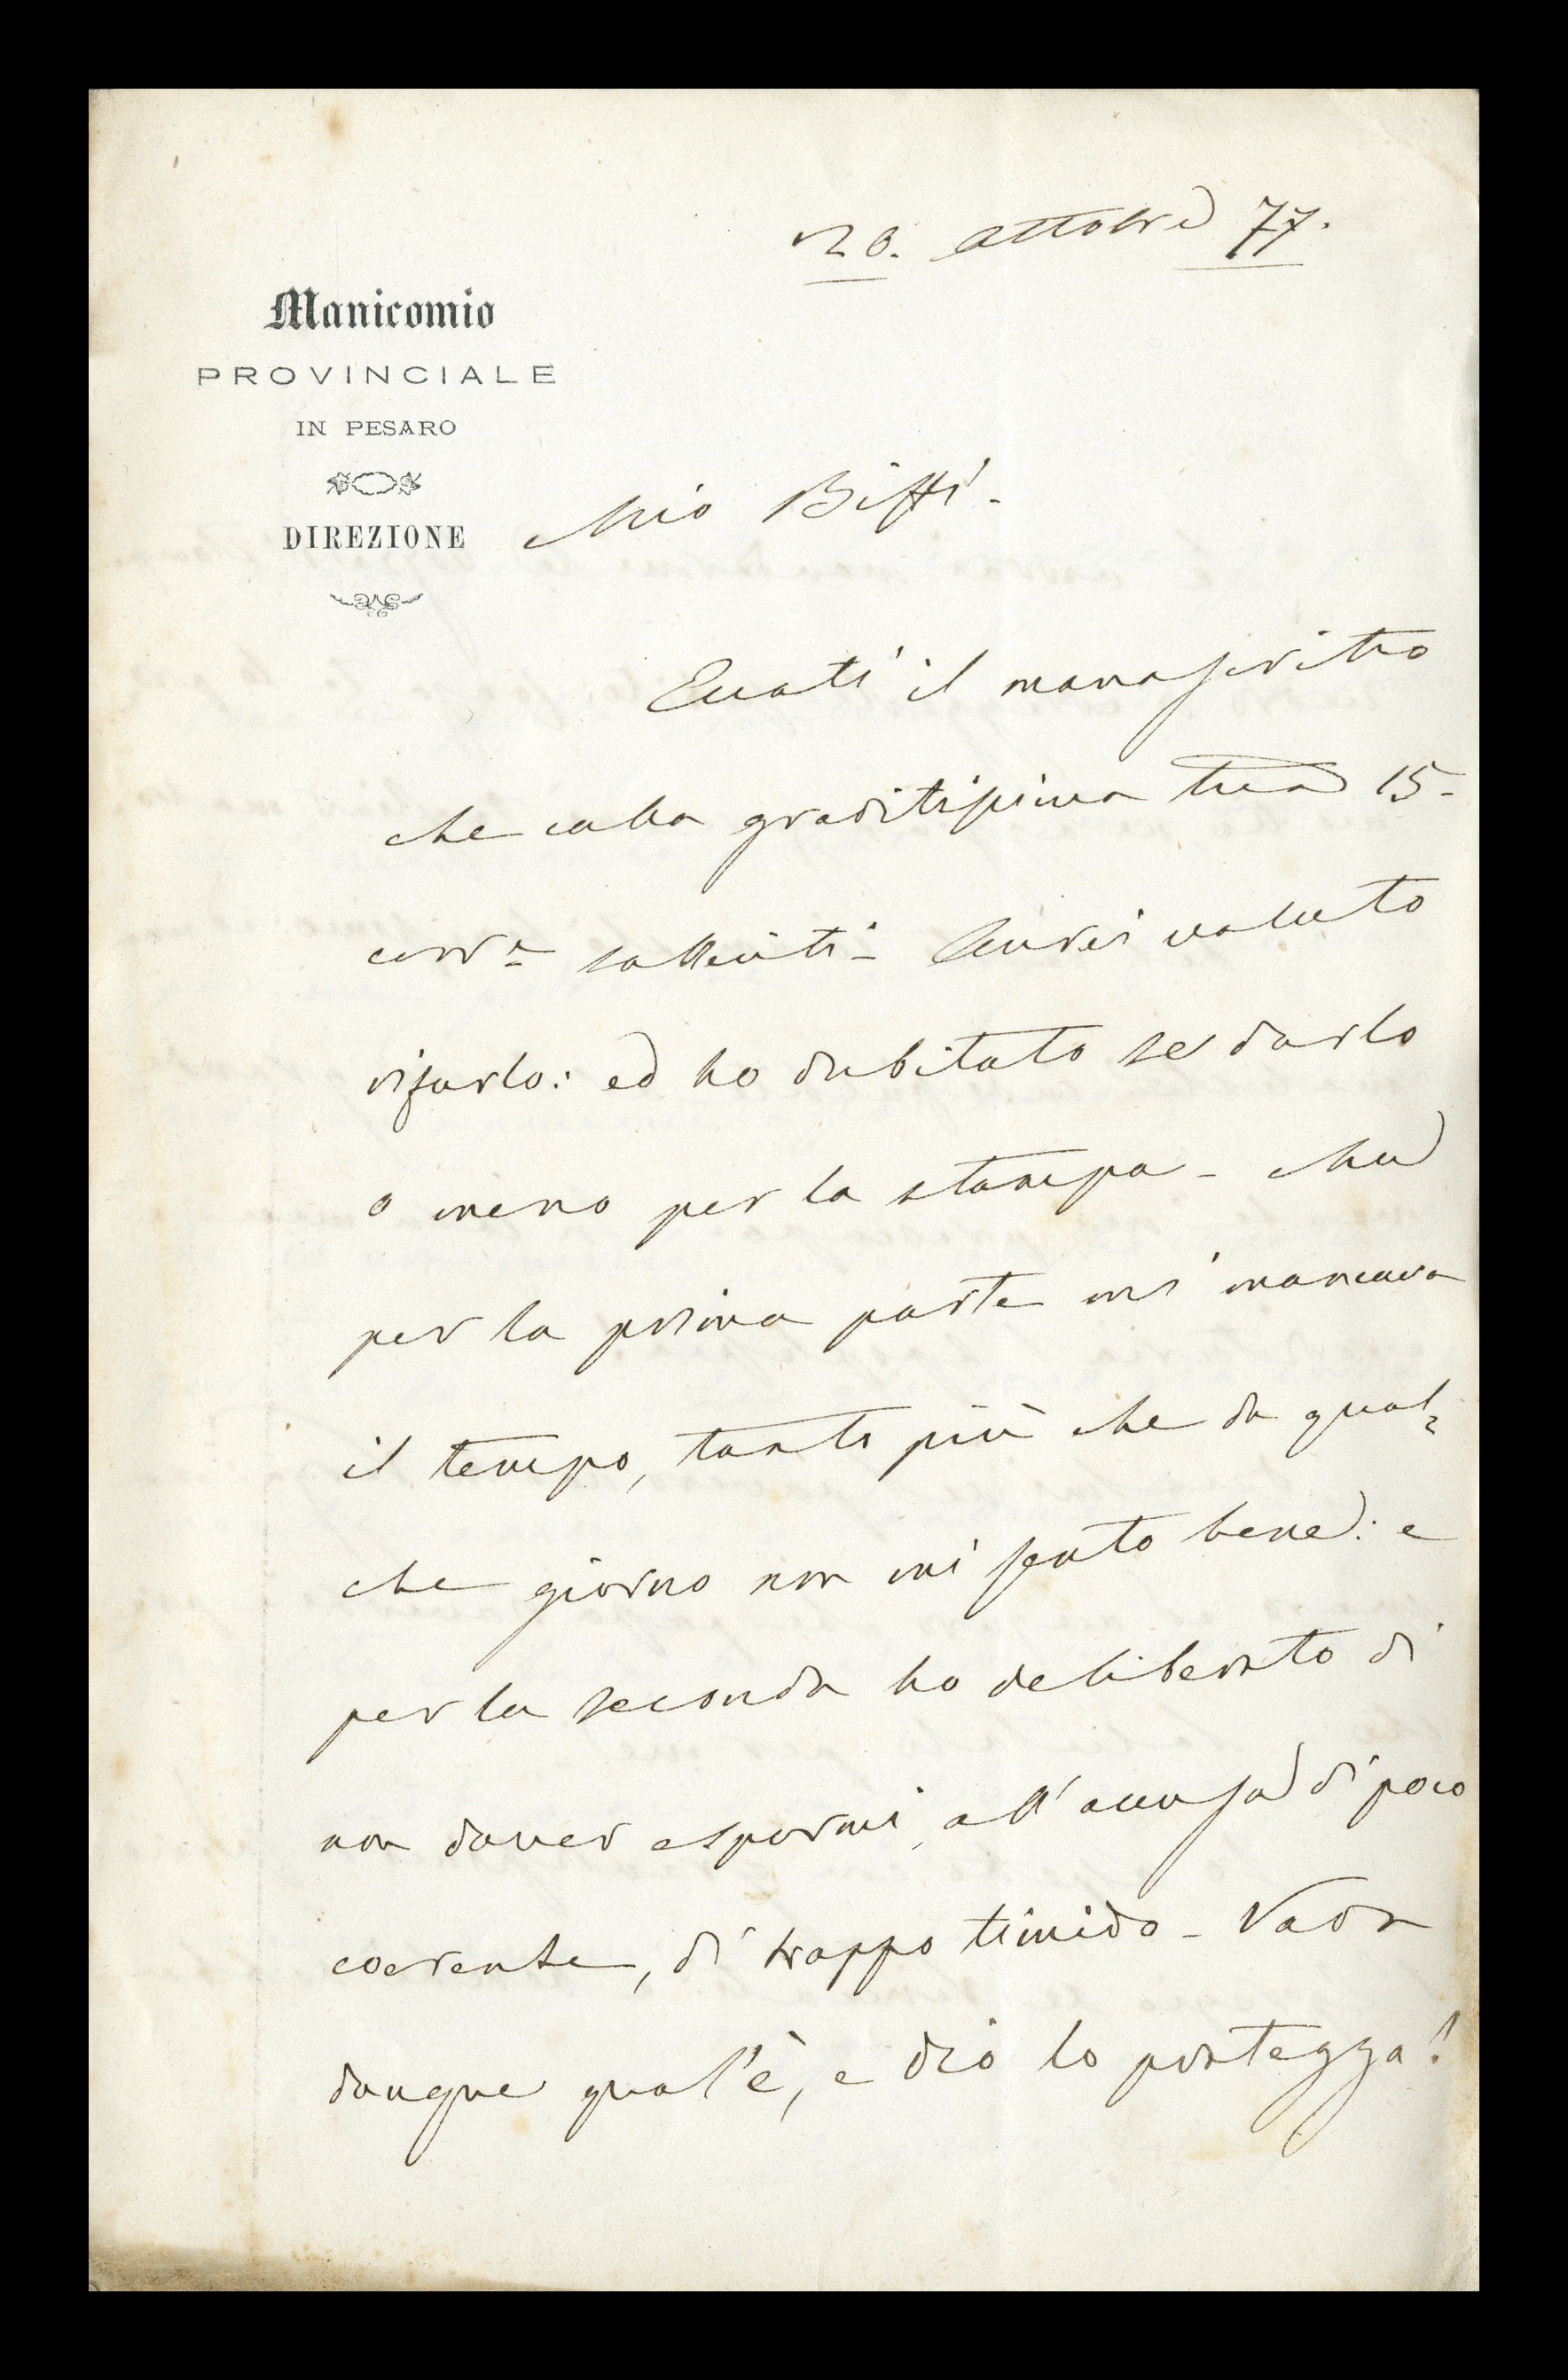 20. ottobre 77.
Manicomio
PROVINCIALE
IN PESARO
DIREZIONE
Mio Biffi.
Eccoti il manoscritto
che colla graditissima tua 15-
corr.e solleciti - Avrei voluto
rifarlo: ed ho dubitato se darlo
o meno per la stampa - Ma
per la prima parte mi mancava
il tempo, tanto più che da qual=
che giorno non mi sento bene: e
per la seconda ho deliberato di
non dover espormi all'accusa di poco
coerente, di troppo timido - Vada
dunque qual'è, e dio lo protegga!